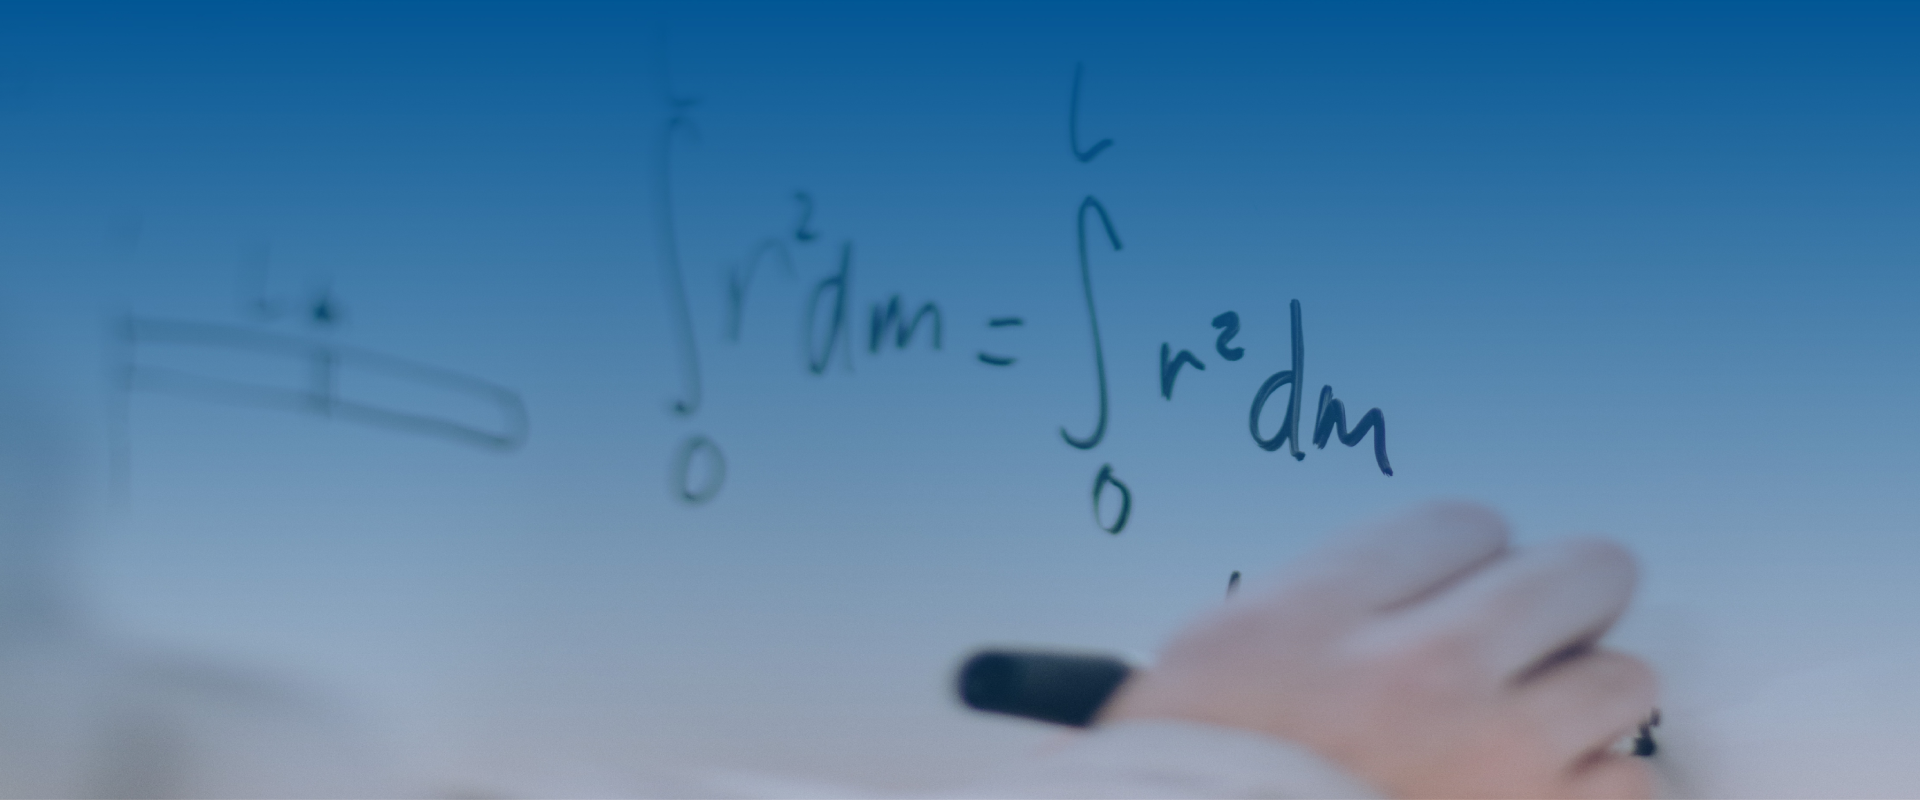 ∫₀ᴸ r² dm = ∫₀ᴸ r² dm